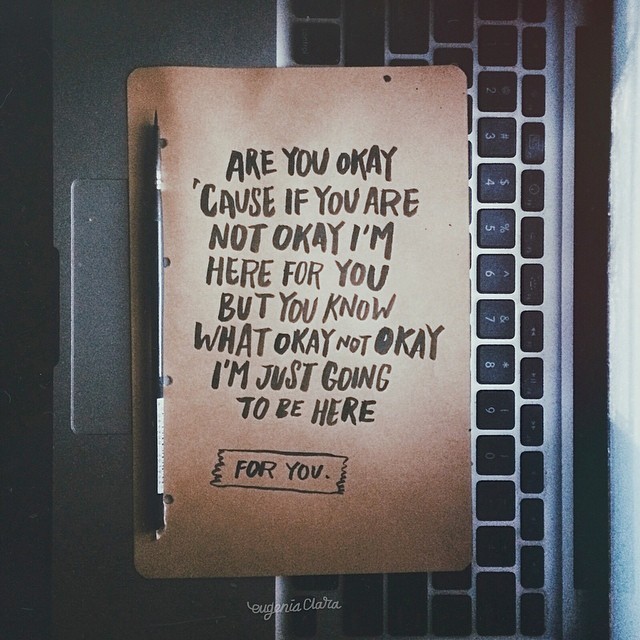 ARE YOU OKAY
'CAUSE IF YOU ARE
NOT OKAY I'M
HERE FOR YOU
BUT YOU KNOW
WHAT OKAY NOT OKAY
I'M JUST GOING
TO BE HERE
FOR YOU.
eugenia Clara
@ 2
# 3
$ 4
% 5
^ 6
& 7
* 8
( 9
) 0